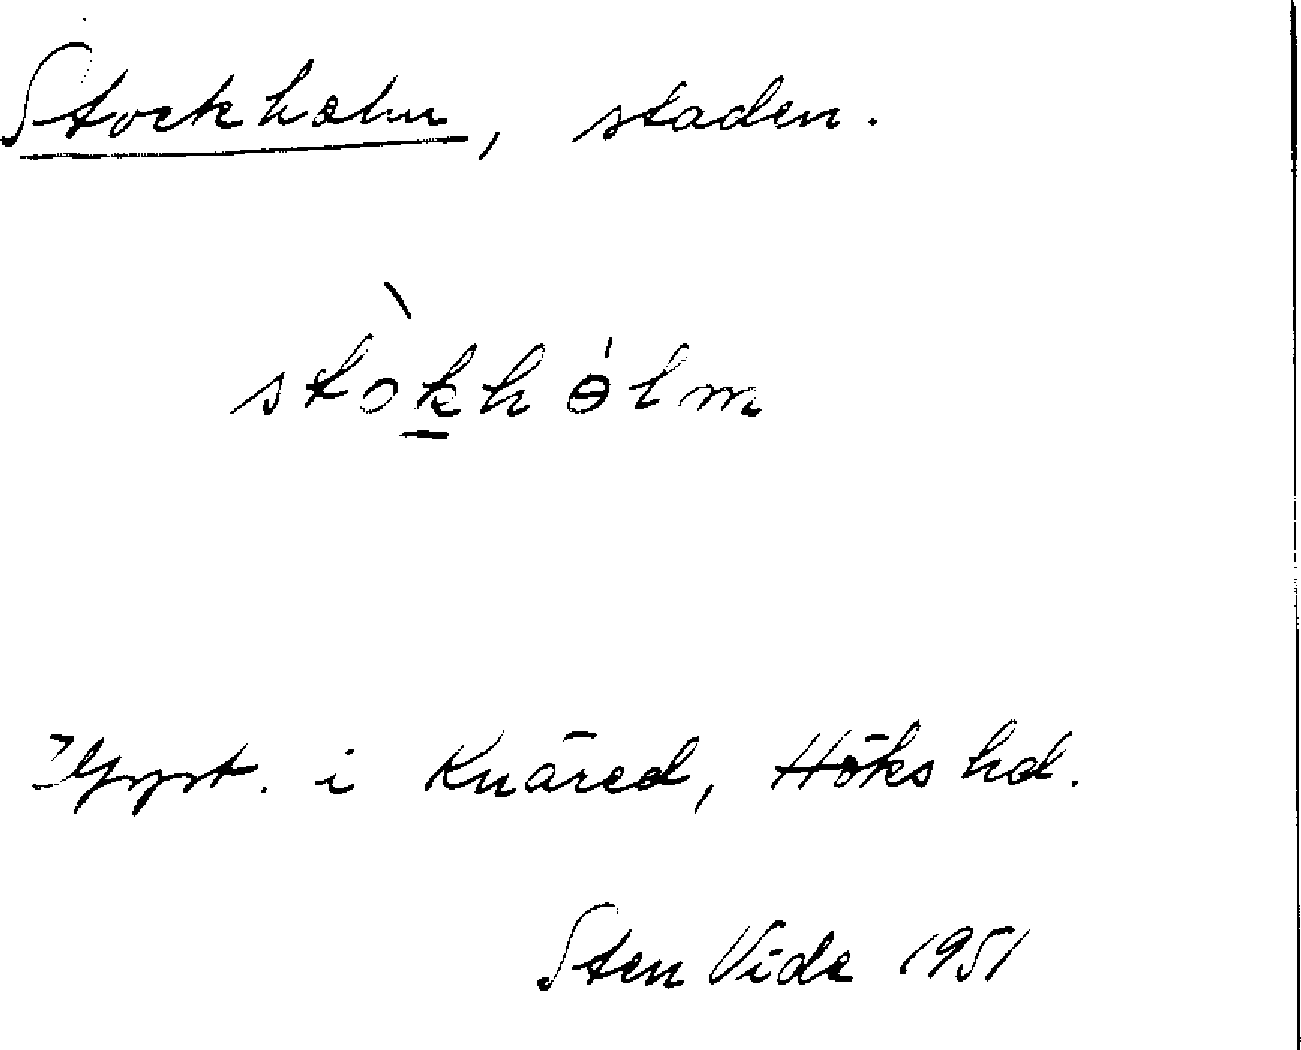 Stockholm, staden.
stòk̲hɵ́lm
Uppt. i Knäred, Höks hd.
Sten Vide 1951